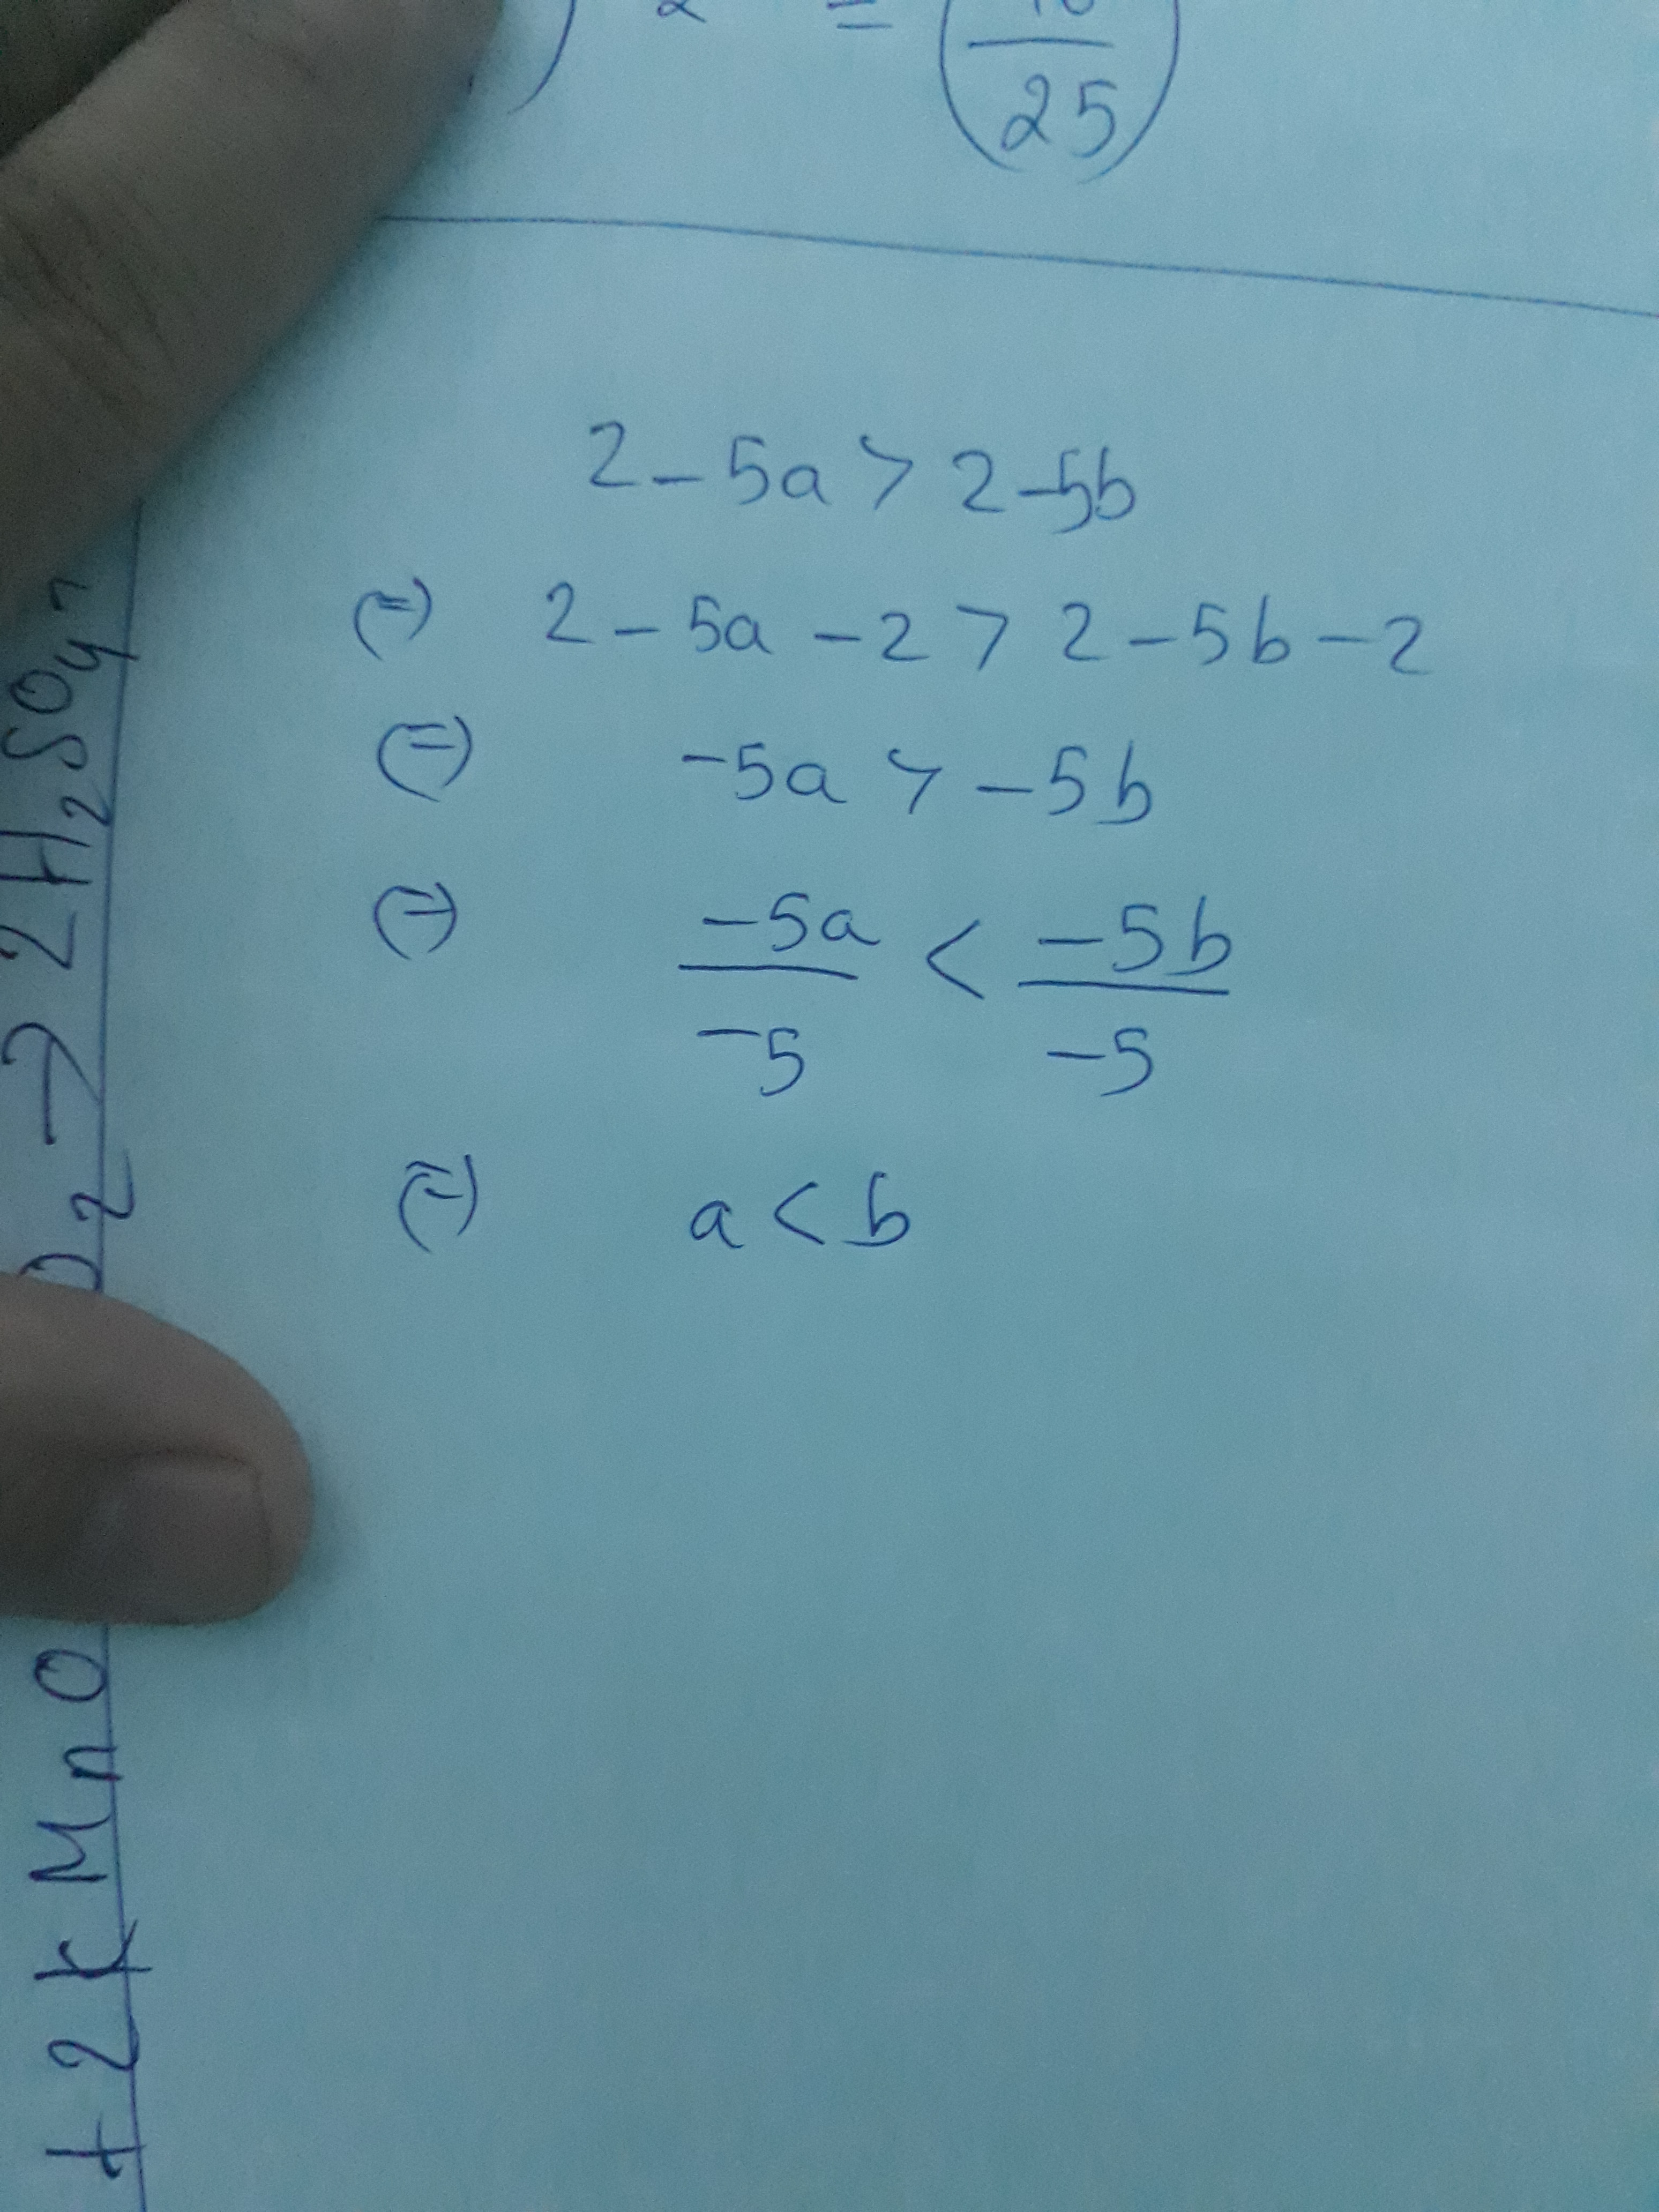 2 =
25
2 - 5a > 2 - 5b
(=) 2 - 5a - 2 > 2 - 5b - 2
(=) -5a > -5b
(=) -5a/-5 < -5b/-5
(=) a < b
+ 2KMnO O2 → 2H2SO4